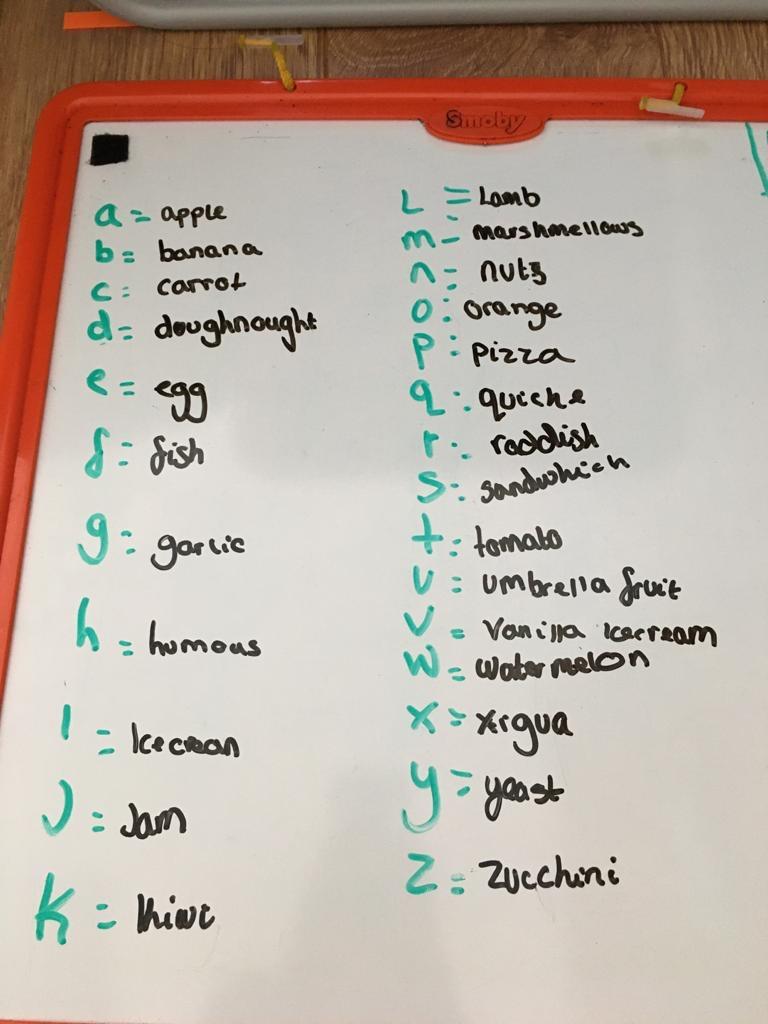 Smoby
a = apple
b = banana
c = carrot
d = doughnought
e = egg
f = fish
g = garlic
h = humous
i = icecream
J = Jam
K = kiwi
L = Lamb
m = marshmellows
n = nuts
o = orange
p = pizza
q = quiche
r = raddish
s = sandwhich
t = tomato
u = umbrella fruit
v = vanilla icecream
w = watermelon
x = xigua
y = yeast
z = zucchini